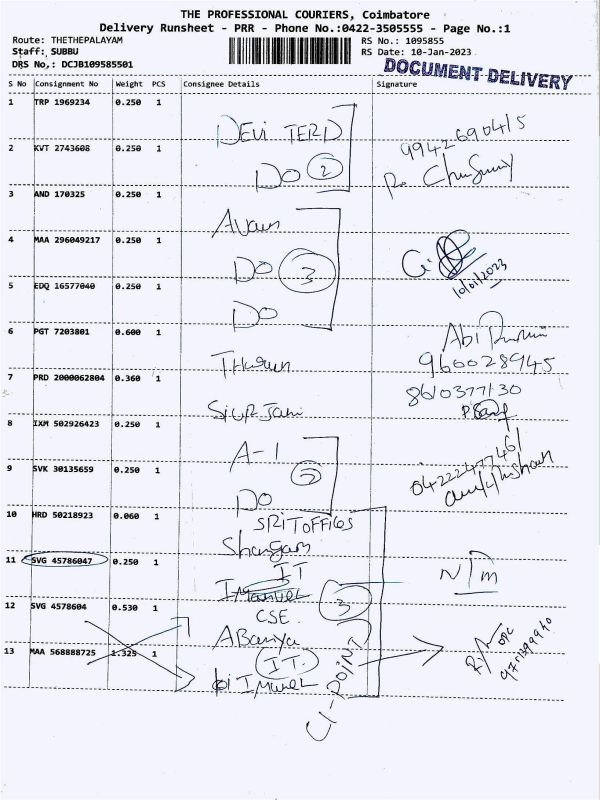 THE PROFESSIONAL COURIERS, Coimbatore
Delivery Runsheet - PRR - Phone No.:0422-3505555 - Page No.:1
Route: THETHEPALAYAM
Staff: SUBBU
DRS No,: DCJB109585501
RS No.: 1095855
RS Date: 10-Jan-2023
DOCUMENT DELIVERY
S No Consignment No Weight PCS Consignee Details Signature
1 TRP 1969234 0.250 1
DEVI TERD
2 KVT 2743608 0.250 1
DO 2
9942690415
3 AND 170325 0.250 1
4 MAA 296049217 0.250 1
DO 3
10/01/2023
5 EDQ 16577040 0.250 1
DO
6 PGT 7203801 0.600 1
Abi
960028945
7 PRD 2000062804 0.360 1
8610377130
8 IXM 502926423 0.250 1
A-1
9 SVK 30135659 0.250 1
DO
04222477461
10 HRD 50218923 0.060 1
11 SVG 45786047 0.250 1
IT
N/m
3
CSE
12 SVG 4578604 0.530 1
13 MAA 568888725 1.325 1
IT.
CI-POINT